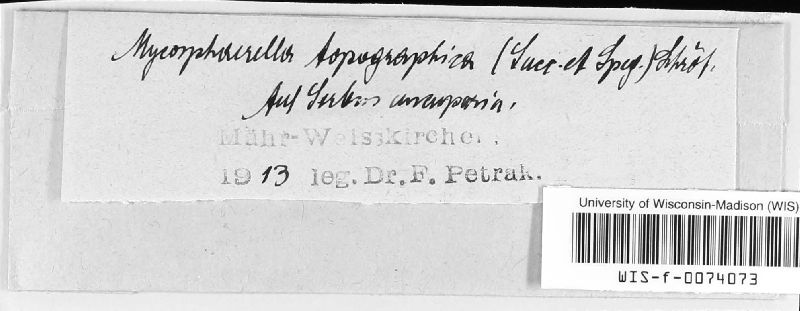 Mycosphaerella topographica (Sacc. et Speg.) Schröt.
Auf Sorbus aucuparia.
Mähr-Weisskirchen.
1913 leg. Dr. F. Petrak.
University of Wisconsin-Madison (WIS)
WIS-f-0074073